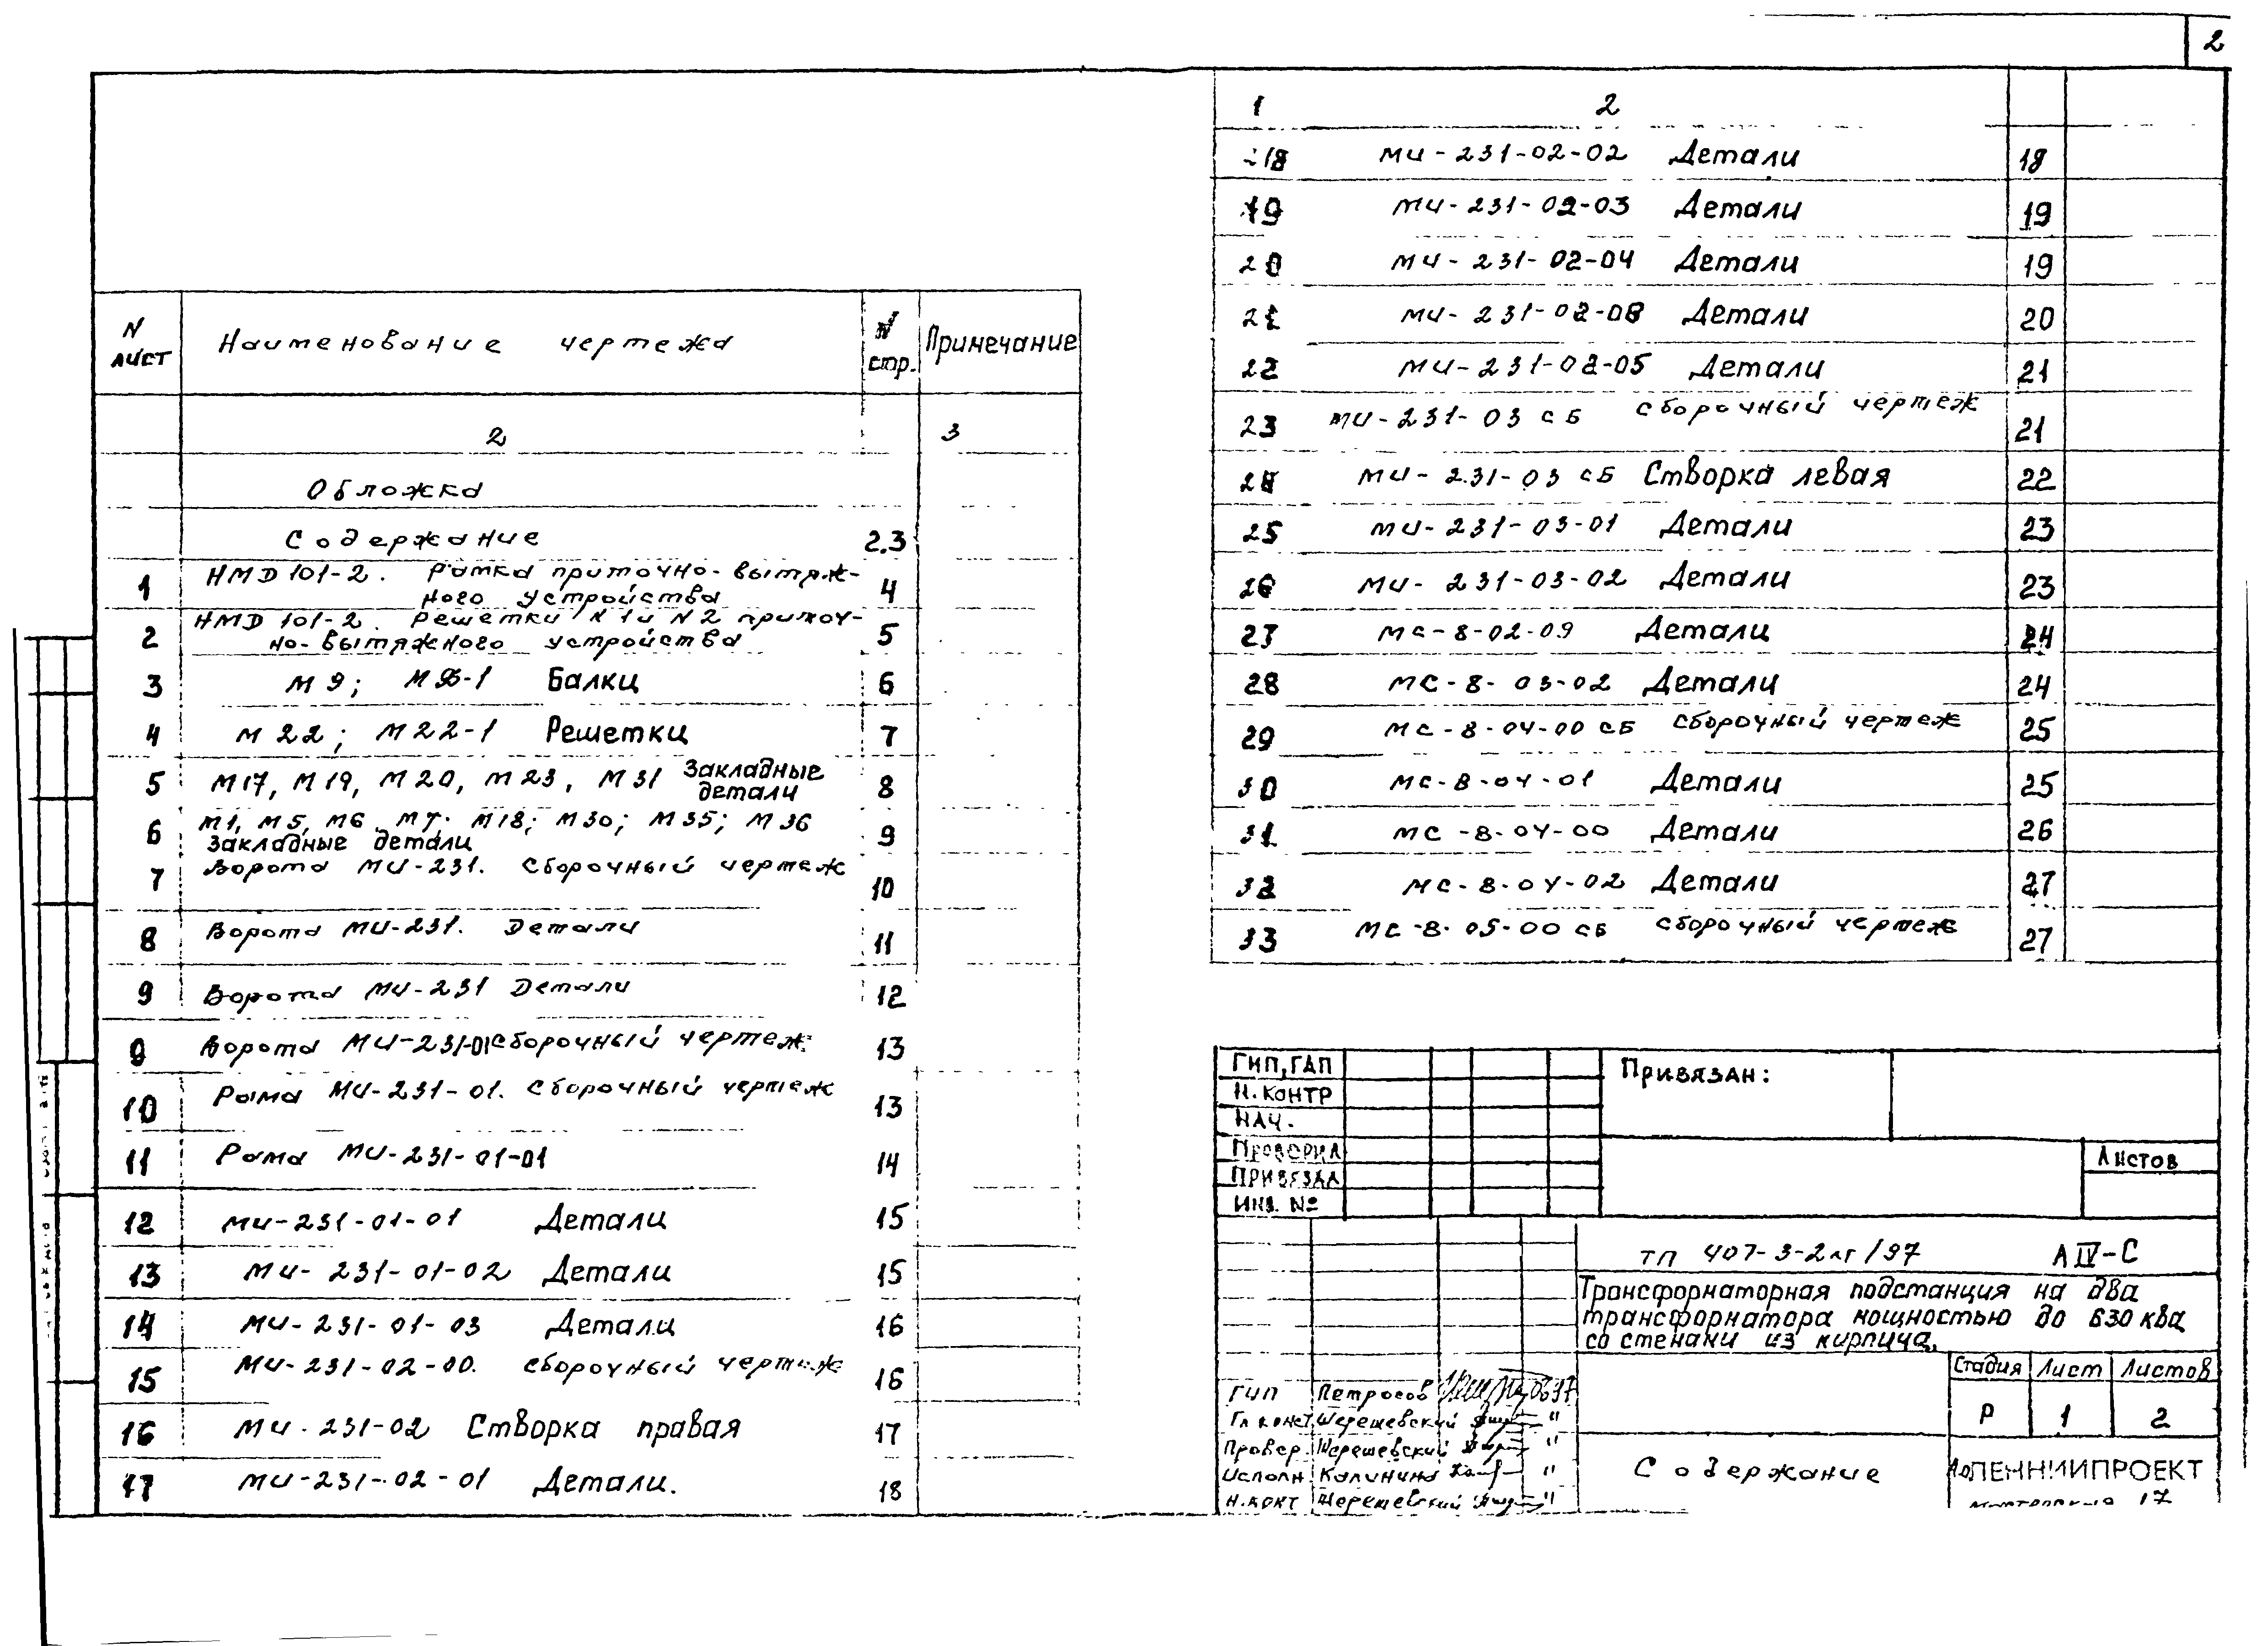 2
N лист Наименование чертежа N стр. Примечание
2 3
Обложка
Содержание 2.3
1 НМД 101-2. Рамка приточно-вытяж-
ного устройства 4
2 НМД 101-2. Решетки N 1 и N 2 приточ-
но-вытяжного устройства 5
3 М 9; Балки 6
4 М 22; М 22-1 Решетки 7
5 М17, М19, М20, М23, М31 Закладные
детали 8
6 М1, М5, М6, М7; М18; М30; М35; М36
Закладные детали 9
7 Ворота МИ-231. Сборочный чертеж 10
8 Ворота МИ-231. Детали 11
9 Ворота МИ-231 Детали 12
9 Ворота МИ-231-01 Сборочный чертеж 13
10 Рама МИ-231-01. Сборочный чертеж 13
11 Рама МИ-231-01-01 14
12 МИ-231-01-01 Детали 15
13 МИ-231-01-02 Детали 15
14 МИ-231-01-03 Детали 16
15 МИ-231-02-00. Сборочный чертеж 16
16 МИ-231-02 Створка правая 17
17 МИ-231-02-01 Детали. 18
1 2
18 МИ-231-02-02 Детали 18
19 МИ-231-02-03 Детали 19
20 МИ-231-02-04 Детали 19
21 МИ-231-02-08 Детали 20
22 МИ-231-02-05 Детали 21
23 МИ-231-03 СБ Сборочный чертеж 21
24 МИ-231-03 СБ Створка левая 22
25 МИ-231-03-01 Детали 23
26 МИ-231-03-02 Детали 23
27 МС-8-02-09 Детали 24
28 МС-8-03-02 Детали 24
29 МС-8-04-00 СБ Сборочный чертеж 25
30 МС-8-04-01 Детали 25
31 МС-8-04-00 Детали 26
32 МС-8-04-02 Детали 27
33 МС-8-05-00 СБ Сборочный чертеж 27
ГИП, ГАП Привязан:
Н.контр
Нач.
Проверил Листов
Привязал
Инв. №
ТП 407-3-2лг/97 АIV-С
Трансформаторная подстанция на два
трансформатора мощностью до 630 ква
со стенами из кирпича.
Стадия Лист Листов
Р 1 2
ГИП Петросов
Гл конст. Шерешевский "
Провер. Шерешевский "
Исполн Калинина "
Н.конт Шерешевский "
Содержание
АО ЛЕННИИПРОЕКТ
мастерская 17